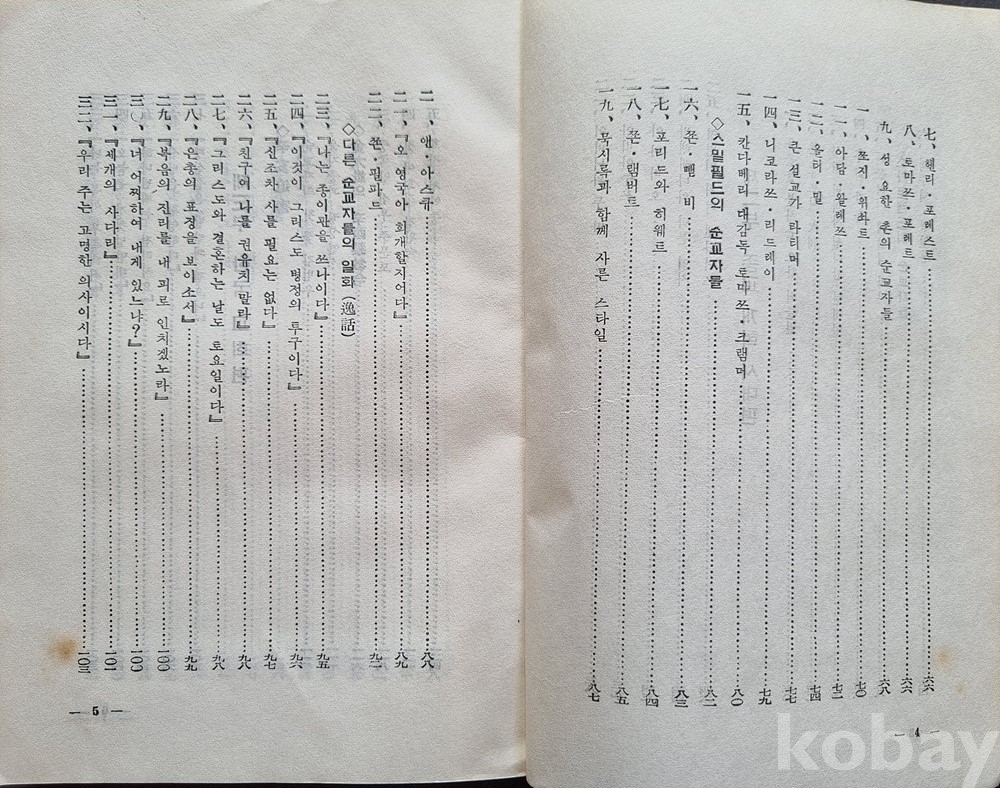 七、헨리·포레스트 六六
八、토마쯔·포레트 六六
九、성 요한 촌의 순교자들 六八
一〇、쪼지·위솨트 七〇
一一、아담·월레쓰 七二
一二、올터·밀 七四
一三、큰 설교가 라티머 七七
一四、니코라쓰·리드레이 七九
一五、칸다베리 대감독 토마쯔·크램머 八〇
◇스밀필드의 순교자들 八二
一六、쫀·뺄비 八三
一七、포리드와 히웨트 八四
一八、쫀·램버트 八五
一九、묵시록과 함께 사른 스타일 八七
— 4 —
二〇、앤·아스큐 八八
二一、『오 영국아 회개할지어다』 八九
二二、쫀·필파트 九二
◇다른 순교자들의 일화 (逸話)
二三、『나는 종이관을 쓰나이다』 九五
二四、『이것이 그리스도 병정의 투구이다』 九六
二五、『신조차 사를 필요는 없다』 九七
二六、『친구여 나를 권유치 말라』 九八
二七、『그리스도와 결혼하는 날도 토요일이다』 九八
二八、『은총의 표장을 보이소서』 九九
二九、『복음의 진리를 내 피로 인치겠노라』 一〇〇
三〇、『너 어찌하여 내게 있느냐?』 一〇〇
三一、『세개의 사다리』 一〇二
三二、『우리 주는 고명한 의사이시다』 一〇三
— 5 —
kobay